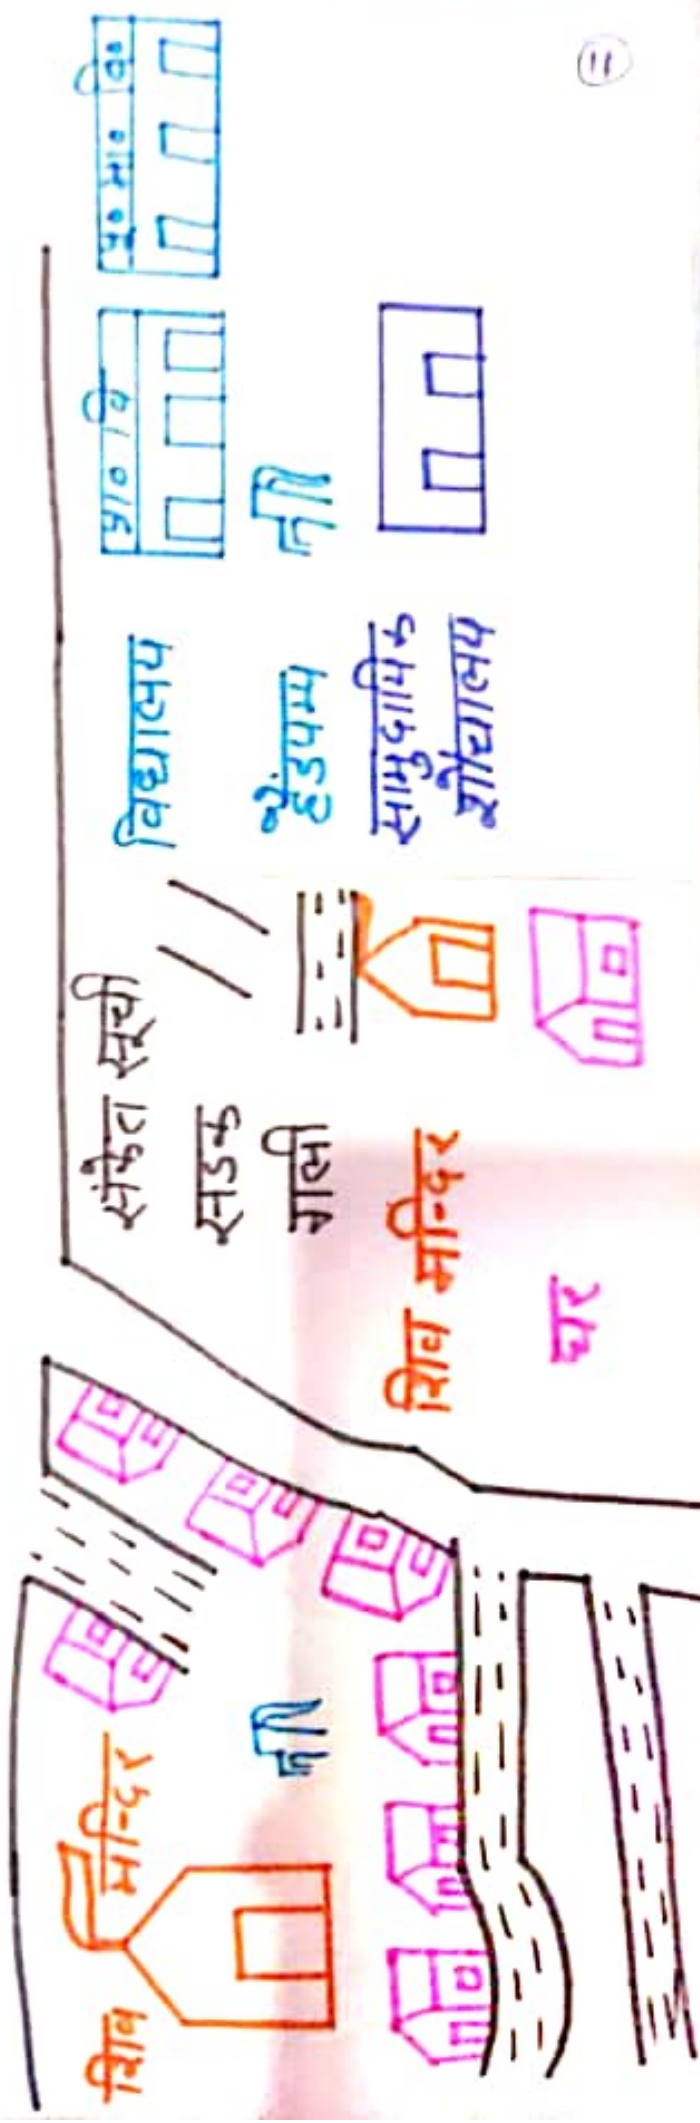 शिव मन्दिर
संकेत सूची
सडक
गली
शिव मन्दिर
घर
विद्यालय
प्रा० वि
पू० मा० वि
हैंडपम्प
सामुदायिक
शौचालय
11